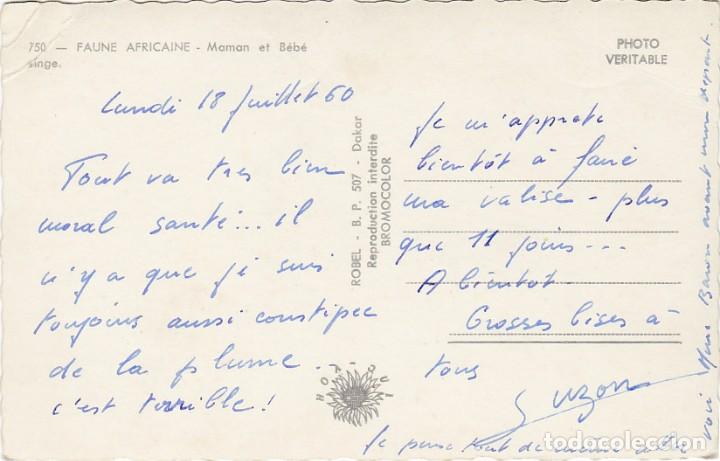 750 — FAUNE AFRICAINE - Maman et Bébé
singe.
PHOTO
VERITABLE
Lundi 18 Juillet 60
Tout va très bien
moral santé... il
n'y a que je suis
toujours aussi constipée
de la plume.
c'est terrible!
ROBEL - B. P. 507 - Dakar
Reproduction interdite
BROMOCOLOR
Je m'apprête
bientôt à faire
ma valise - plus
que 11 jours...
A bientôt.
Grosses bises à
tous
Suzon
Je pense tout de même aller
voir Mme Baron avant mon départ.
todocoleccion.net